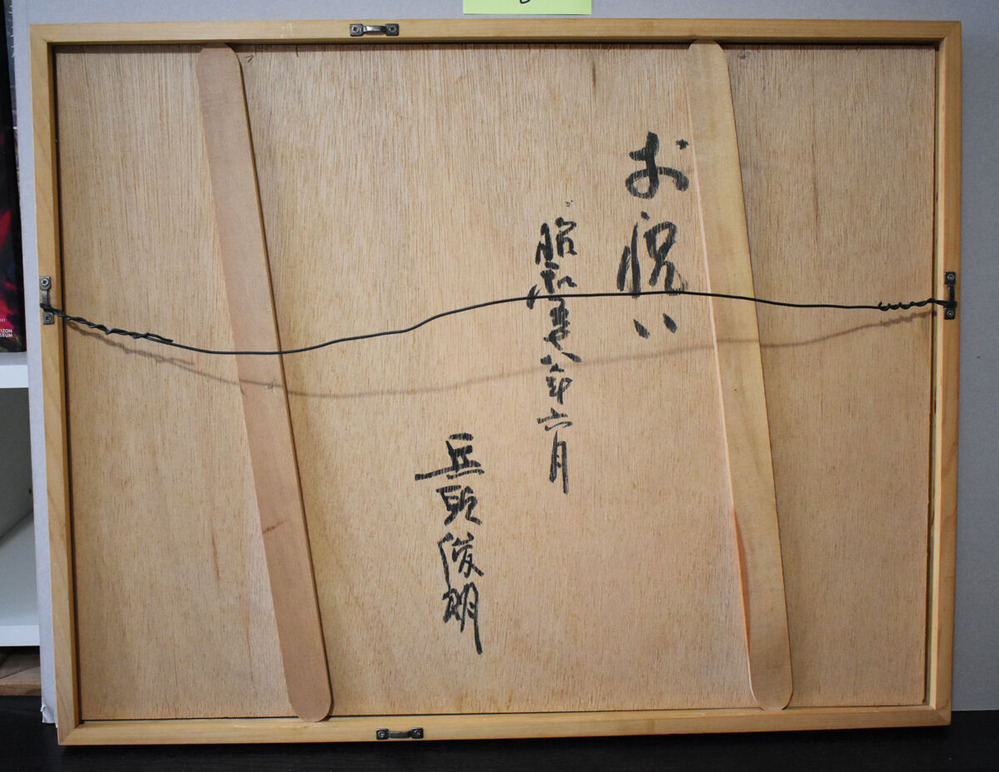 お祝い
昭和五十八年六月
兵頭俊明